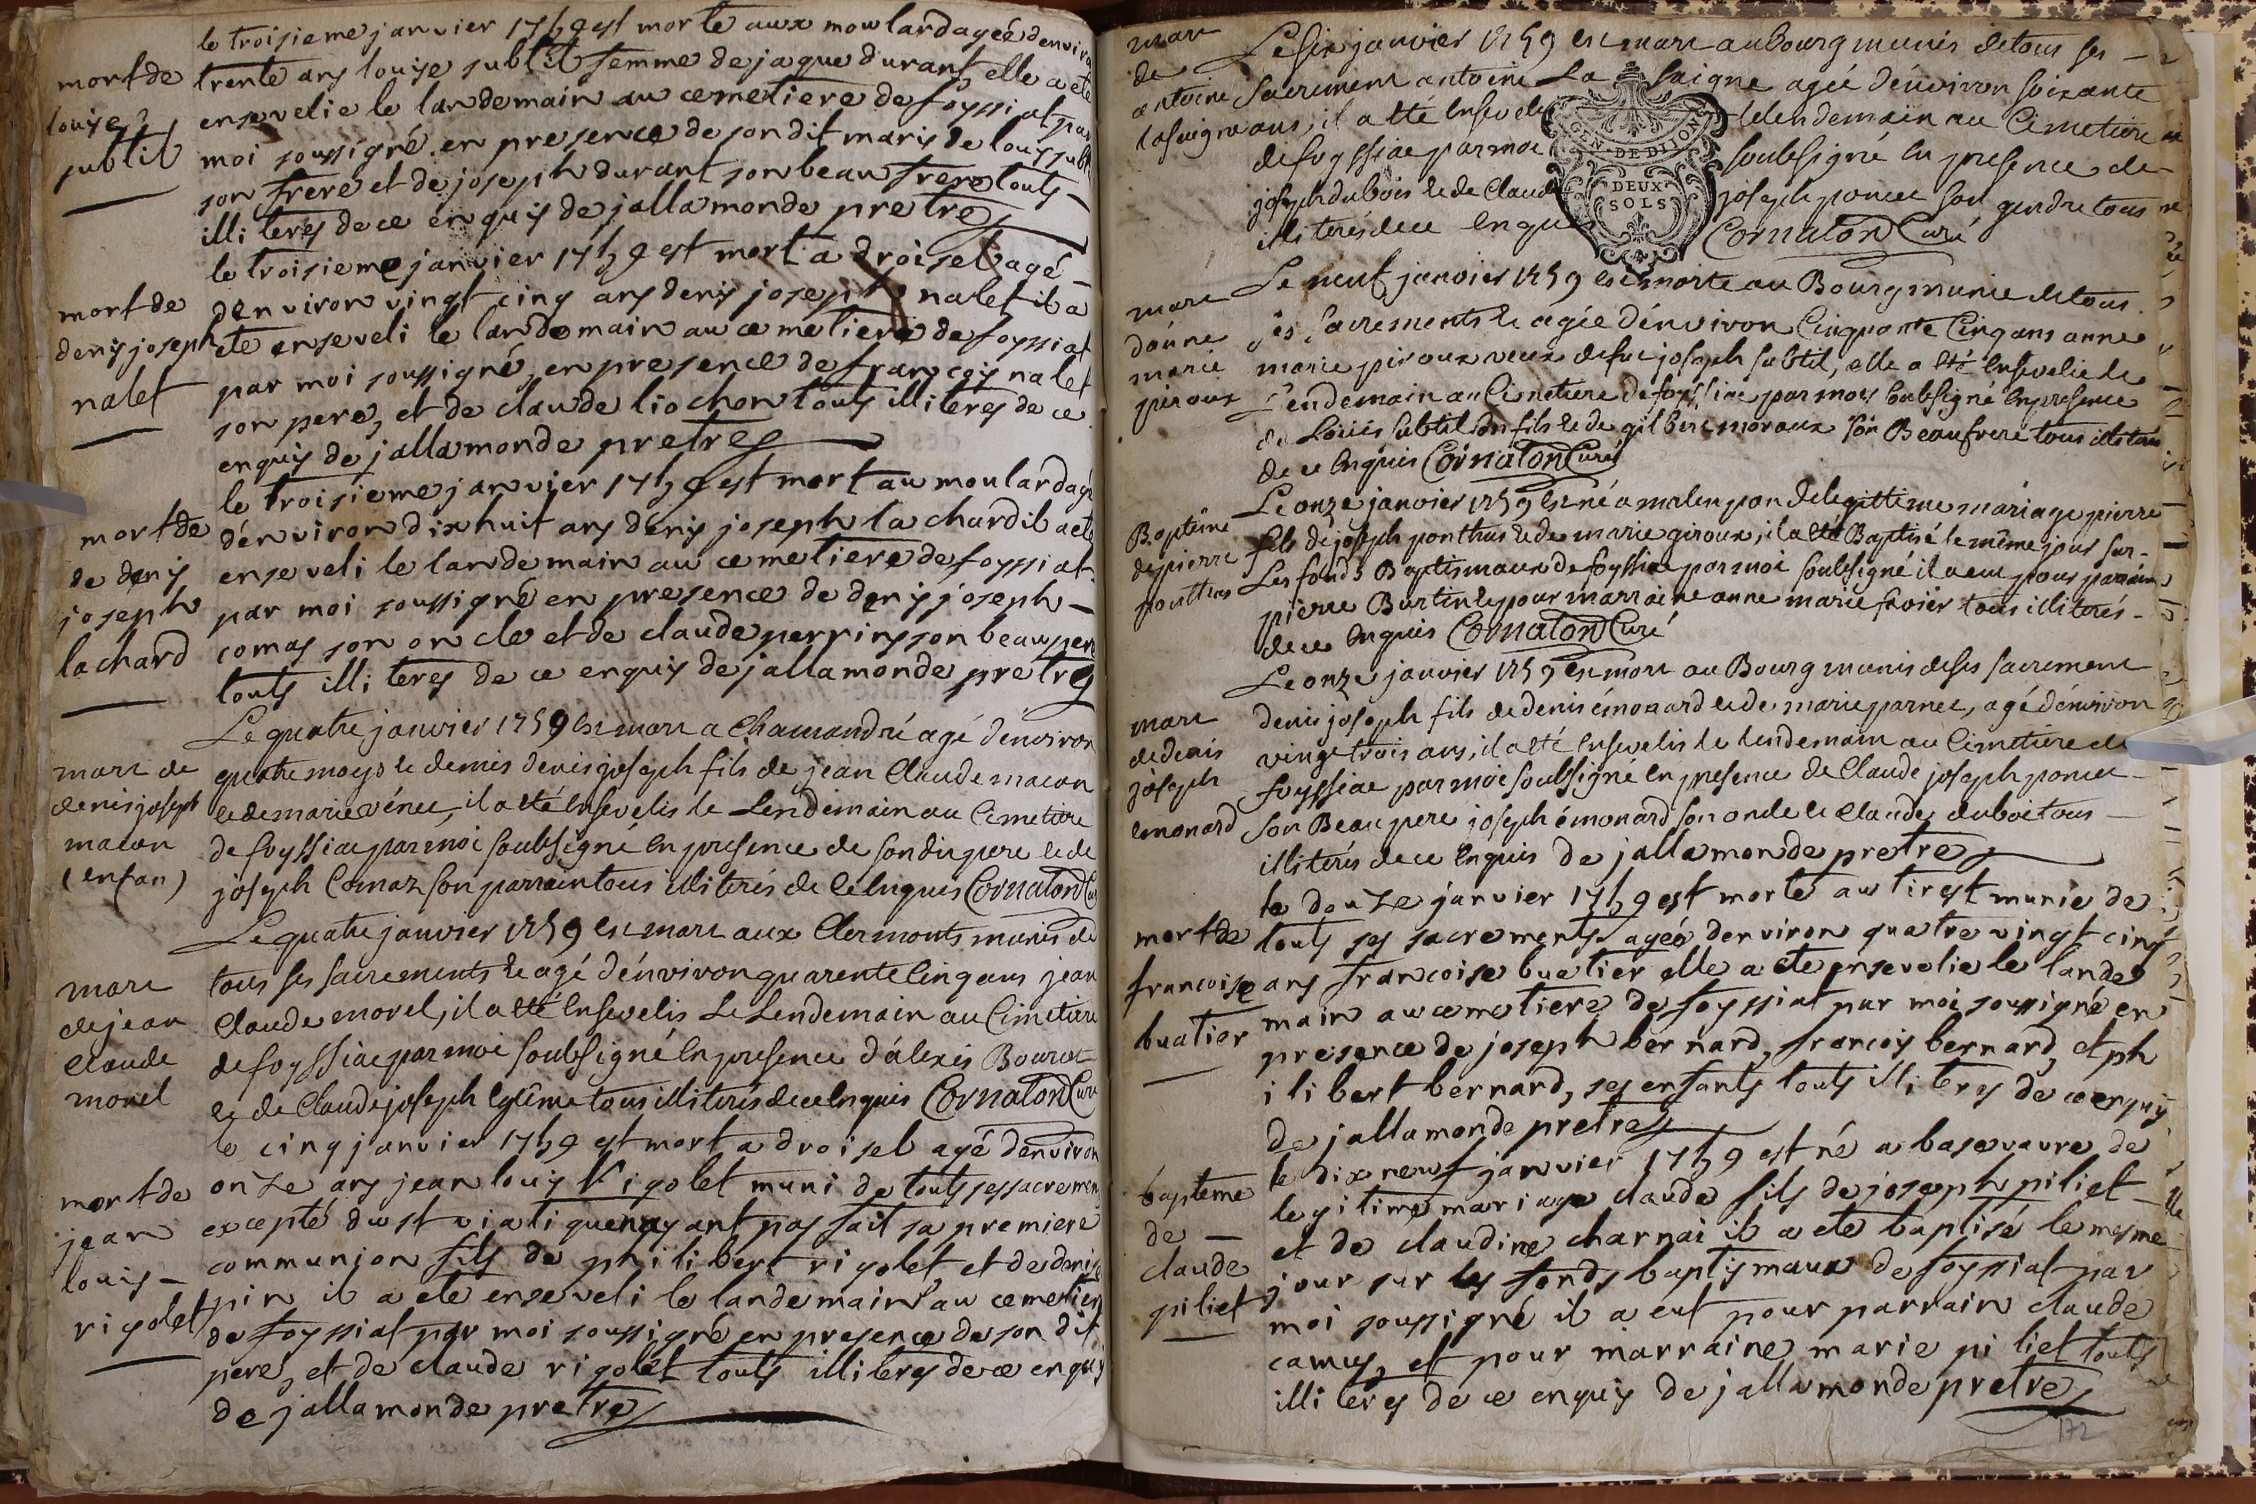 le troisieme janvier 1759 est morte aux moulard agée denviron
mort de
louise
subtil
trente ans louise subtil femme de jaque durant elle a eté
ensevelie le landemain au cemetiere de foyssiat par
moi soussigné en presence de son dit maris de louys subtil
son frere et de joseph durant son beau frere touts
illiterés de ce enquis de jallamonde pretre
le troisieme janvier 1759 est mort a droisel agé
mort de
denis joseph
nalet
denviron vingt cinq ans denis joseph nalet il a
ete enseveli le landemain au cemetiere de foyssiat
par moi soussigné, en presence de francois nalet
son pere, et de claude liochon touts illiterés de ce
enquis de jallamonde pretre
le troisieme janvier 1759 est mort au moulard agé
mort de
de denis
joseph
lachard
dénviron dix huit ans denis joseph lachard il a eté
enseveli le landemain au cemetiere de foyssiat
par moi soussigné en presence de denis joseph
comas son oncle et de claude perrin son beau pere
touts illiterés de ce enquis de jallamonde pretre
Le quatre janvier 1759 est mort a Chamandré agé dénviron
mort de
denis joseph
macon
(enfan)
quatre moys et demis denis joseph fils de jean Claude macon
et de marie vénet, il a été Ensevelis le Lendemain au Cimetiere
de foyssiat par moi soubsigné En presence de son dit pere et de
joseph Comaz son parrain tous illiterés de ce Enquis Cornaton Curé
Le quatre janvier 1759 est mort aux Clermonts munis de
mort
de jean
Claude
morel
tous ses sacrements et agé dénviron quarente Cinq ans jean
Claude morel, il a été Ensevelis Le Lendemain au Cimetiere
de foyssiat par moi soubsigné En presence d'aléxis Bourcet
et de Claude joseph tous illiterés de ce Enquis Cornaton Curé
le cinq janvier 1759 est mort a droisel agé denviron
mort de
jean
louis
rigolet
onze ans jean louis Rigolet muni de touts ses sacrements
excepté du st viatique nayant pas fait sa premiere
communion fils de philibert rigolet, et de denise
pin il a ete enseveli le landemain au cemetiere
de foyssiat par moi soussigné en presence de son dit
pere, et de claude rigolet touts illiterés de ce enquis
de jallamonde pretre
mort
de
antoine
lasaigne
Le six janvier 1759 est mort au bourg munis de tous ses
sacrement antoine La saigne agée dénviron soixante
ans, il a été Enseveli le lendemain au Cimetiere
de foyssiat par moi soubsigné En presence de
joseph dubois et de Claude joseph poncet son gendre tous
illiterés de ce Enquis Cornaton Curé
GEN. DE DIJON
DEUX
SOLS
Le neuf janvier 1759 est morte au Bourg munie de tous
mort
d'anne
marie
piroux
ses sacrements et agée dénviron Cinquante Cinq ans anne
marie piroux veuve de feu joseph subtil, elle a été Ensevelie le
Lendemain au Cimetiere de foyssiat par moy soubsigné En presence
de Loüis subtil son fils et de gilbert moraux son Beaufrere tous illiterés
de ce Enquis Cornaton Curé
Le onze janvier 1759 est né a malenpon de legittime mariage pierre
Baptême
de pierre
ponthus
fils de joseph ponthus et de marie giroux, il a été Baptisé le même jour sur
Les fonds Baptismaux de foyssiat par moi soubsigné il a eut pour parrain
pierre Burtin et pour marraine anne marie tous illiterés
de ce Enquis Cornaton Curé
Le onze janvier 1759 est mort au Bourg munis de ses sacrement
mort
de denis
joseph
emonard
denis joseph fils de denis émonard et de marie parnet, agé dénviron
vingt trois ans, il a été Ensevelis le lendemain au Cimetiere de
foyssiat par moi soubsigné En presence de Claude joseph poncet
son Beau pere joseph émonard son oncle et Claude duboi tous
illiterés de ce Enquis de jallamonde pretre
le douze janvier 1759 est morte au tirest munie de
mort de
francoise
buatier
touts ses sacrements agée denviron quatre vingt cinq
ans francoise buatier elle a ete ensevelie le lande
main au cemetiere de foyssiat par moi soussigné en
presence de joseph bernard, francois bernard, et ph
ilibert bernard, ses enfants touts illiterés de ce enquis
de jallamonde pretre
le dix neuf janvier 1759 est né a basevavre de
bapteme
de
claude
piliet
legitime mariage claude fils de joseph piliet
et de claudine charnai il a ete baptisé le mesme
jour sur les fonds baptismaux de foyssiat par
moi soussigné il a eut pour parrain claude
camus, et pour marraine marie piliet touts
illiterés de ce enquis de jallamonde pretre
172